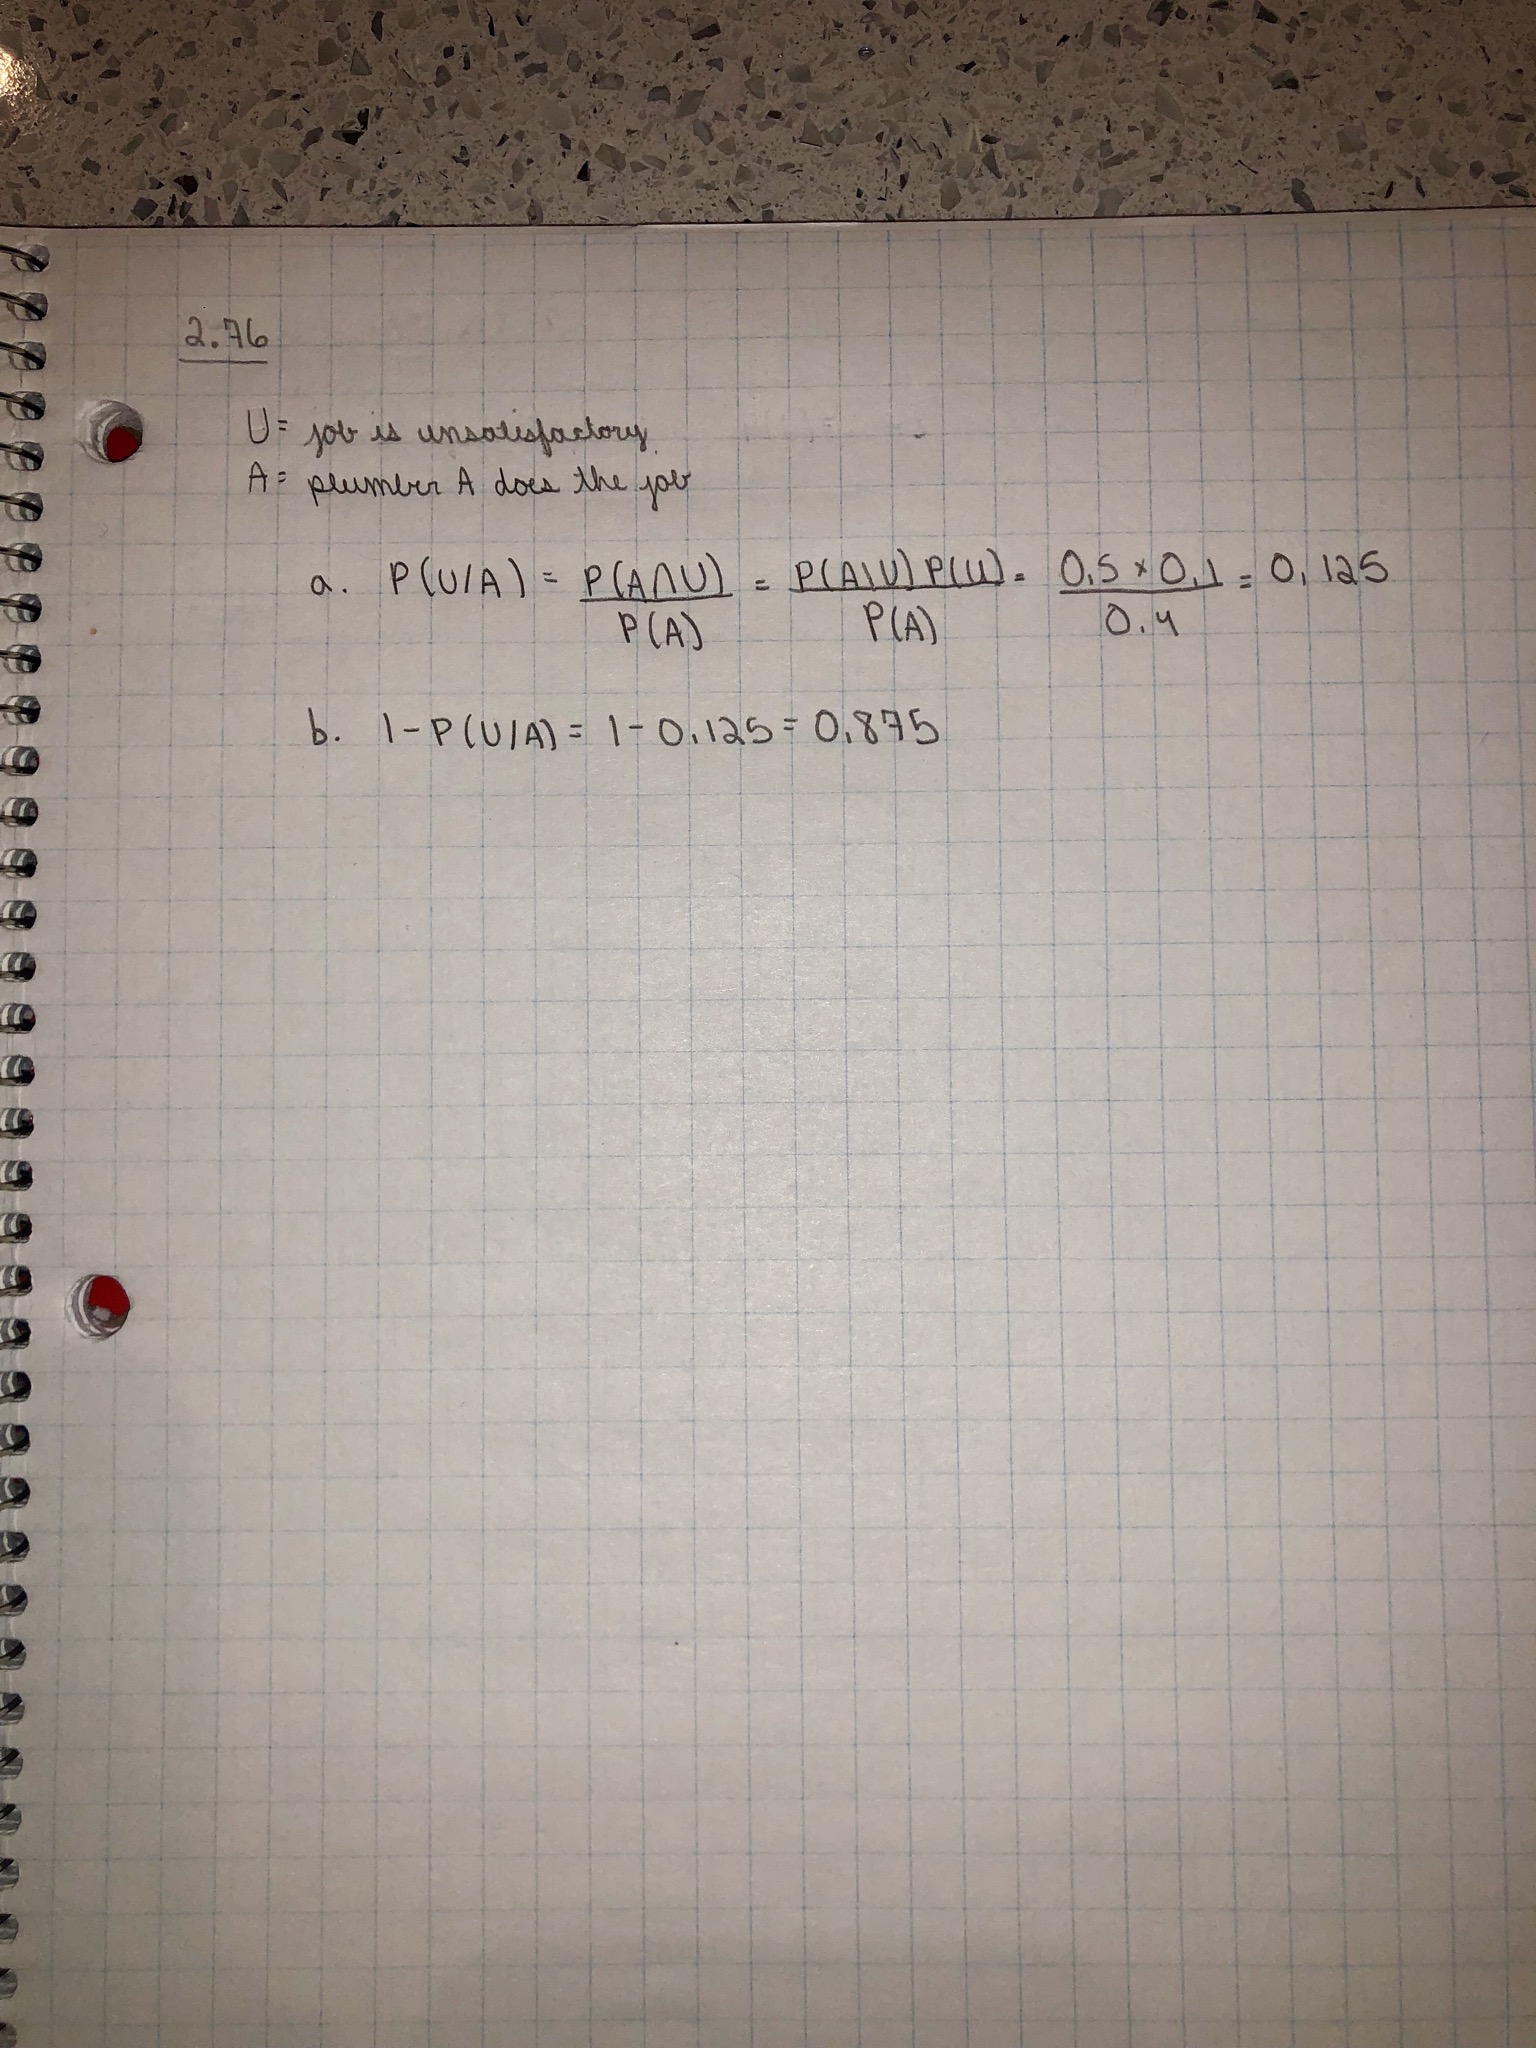 2.76
U= job is unsatisfactory
A= plumber A does the job
a. P(U/A) = P(A∩U)/P(A) = P(A|U)P(U)/P(A) = 0.5 × 0.1/0.4 = 0.125
b. 1-P(U/A) = 1-0.125 = 0.875